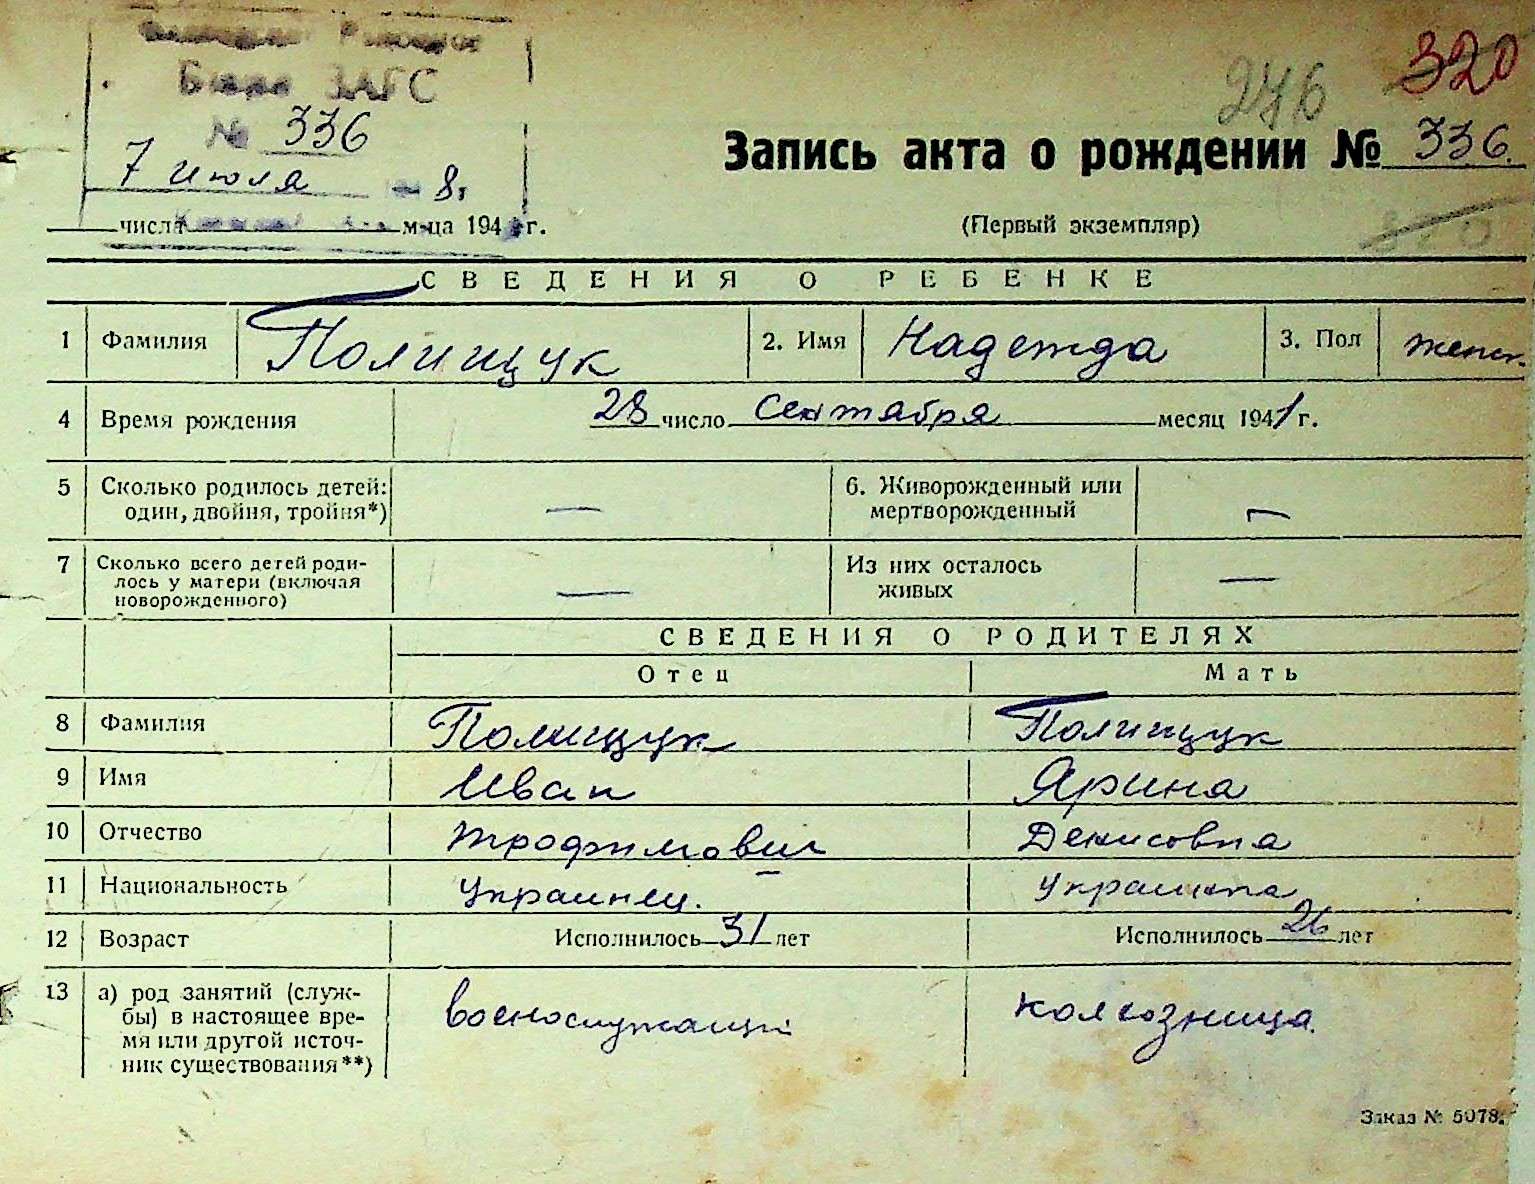 Бюро ЗАГС
№ 336
7 июля 8г.
числа м-ца 194 г.
276
320
Запись акта о рождении № 336.
(Первый экземпляр)
СВЕДЕНИЯ О РЕБЕНКЕ
1 Фамилия Полищук 2. Имя Надежда 3. Пол женск.
4 Время рождения 28 число сентября месяц 1941 г.
5 Сколько родилось детей: — 6. Живорожденный или —
один, двойня, тройня*) мертворожденный
7 Сколько всего детей роди- — Из них осталось —
лось у матери (включая живых
новорожденного)
СВЕДЕНИЯ О РОДИТЕЛЯХ
Отец Мать
8 Фамилия Полищук Полищук
9 Имя Иван Ярина
10 Отчество Трофимович Денисовна
11 Национальность украинец. украинка
12 Возраст Исполнилось 31 лет Исполнилось 26 лет
13 а) род занятий (служ- военнослужащий колхозница.
бы) в настоящее вре-
мя или другой источ-
ник существования**)
Заказ № 5078.